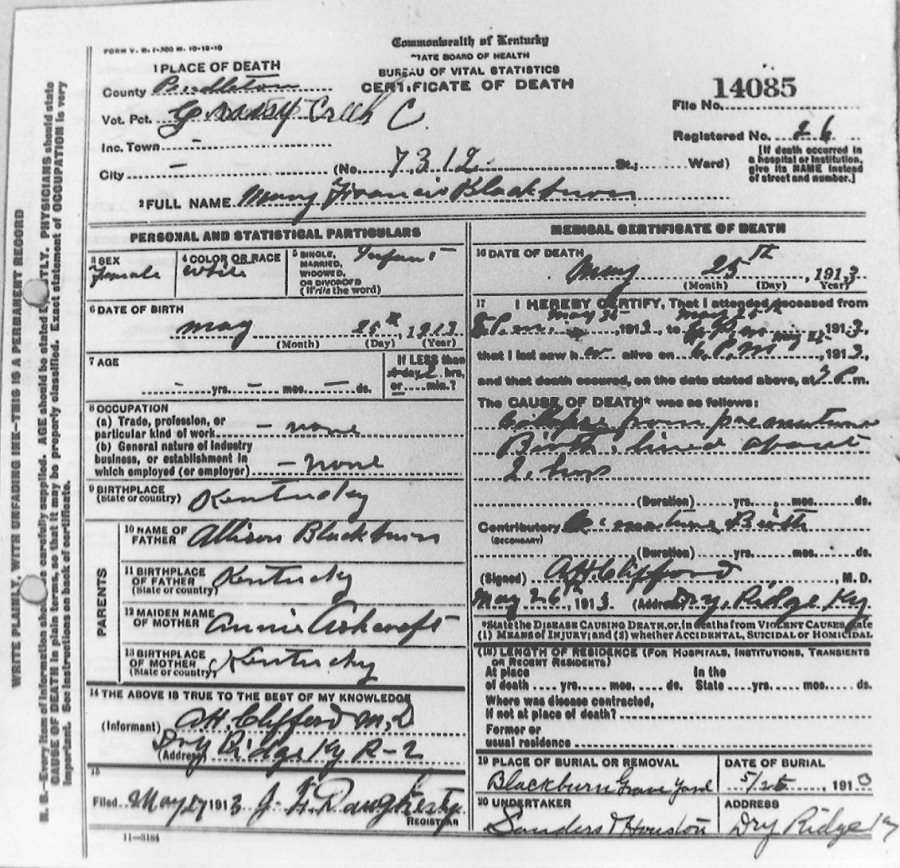 FORM V. S. 1-300 M. 10-12-10
Commonwealth of Kentucky
STATE BOARD OF HEALTH
BUREAU OF VITAL STATISTICS
CERTIFICATE OF DEATH
1 PLACE OF DEATH
County Pendleton
Vot. Pct. Grassy Creek C.
Inc. Town -
City - (No. 7312 St.; Ward)
14085
File No.
Registered No. 26
[If death occurred in
a hospital or institution,
give its NAME instead
of street and number.]
2 FULL NAME Mary Francis Blackburn
PERSONAL AND STATISTICAL PARTICULARS
3 SEX Female
4 COLOR OR RACE White
5 SINGLE, MARRIED, WIDOWED, OR DIVORCED (Write the word) Infant
6 DATE OF BIRTH
May 25th 1913
(Month) (Day) (Year)
7 AGE
- yrs. - mos. - ds.
If LESS than
1 day 2 hrs.
or min.?
8 OCCUPATION
(a) Trade, profession, or
particular kind of work - none
(b) General nature of industry
business, or establishment in
which employed (or employer) - none
9 BIRTHPLACE
(State or country) Kentucky
PARENTS
10 NAME OF FATHER Allison Blackburn
11 BIRTHPLACE OF FATHER (State or country) Kentucky
12 MAIDEN NAME OF MOTHER Annie Ashcraft
13 BIRTHPLACE OF MOTHER (State or country) Kentucky
14 THE ABOVE IS TRUE TO THE BEST OF MY KNOWLEDGE
(Informant) AH. Clifford M.D
(Address) Dry Ridge Ky R-2
15
Filed May 27 1913 J. Daugherty
REGISTRAR
11-3184
MEDICAL CERTIFICATE OF DEATH
16 DATE OF DEATH
May 25th, 1913
(Month) (Day) (Year)
17 I HEREBY CERTIFY, That I attended deceased from
May 25, 1913, to May 25th, 1913,
that I last saw her alive on 6 P.M May 25, 1913,
and that death occured, on the date stated above, at P.m.
The CAUSE OF DEATH* was as follows:
Collapse from premature
Birth, lived about
2 hrs
(Duration) yrs. mos. ds.
Contributory Premature Birth
(SECONDARY)
(Duration) yrs. mos. ds.
(Signed) AH Clifford, M.D.
May 26th, 1913 (Address) Dry Ridge Ky
*State the DISEASE CAUSING DEATH, or, in deaths from VIOLENT CAUSES, state
(1) MEANS OF INJURY; and (2) whether ACCIDENTAL, SUICIDAL or HOMICIDAL
(18) LENGTH OF RESIDENCE (FOR HOSPITALS, INSTITUTIONS, TRANSIENTS
OR RECENT RESIDENTS)
At place In the
of death yrs. mos. ds. State yrs. mos. ds.
Where was disease contracted,
if not at place of death?
Former or
usual residence
19 PLACE OF BURIAL OR REMOVAL
Blackburn Grave Yard
DATE OF BURIAL
5/26, 1913
20 UNDERTAKER
Sanders & Houston
ADDRESS
Dry Ridge Ky
WRITE PLAINLY, WITH UNFADING INK—THIS IS A PERMANENT RECORD
N. B.—Every item of information should be carefully supplied. AGE should be stated EXACTLY. PHYSICIANS should state
CAUSE OF DEATH in plain terms, so that it may be properly classified. Exact statement of OCCUPATION is very
important. See instructions on back of certificate.